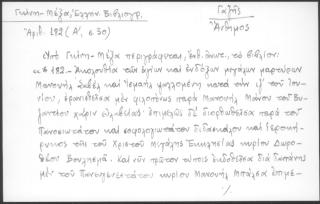 Γκίνη-Μέξα, Ἑλλην. Βιβλιογρ.
Γαζῆς
Ἄνθιμος
Ἀριθ. 182 (Α', σ. 30)
Ὑπὸ Γκίνη-Μέξα περιγράφεται, ἔνθ. ἀνωτ., τὸ βιβλίον:
«182.- Ἀκολουθία τῶν ἁγίων καὶ ἐνδόξων μεγάλων μαρτύρων
Μανουὴλ Σαβὲλ καὶ Ἰσμαὴλ ψαλλομένη κατὰ τὴν ιζ' τοῦ Ἰου-
νίου, ἐρανισθεῖσα μὲν φιλοπόνως παρὰ Μανουὴλ Μάνου τοῦ Βυ-
ζαντίου χάριν εὐλαβείας· ἐπιμελῶς δὲ διορθωθεῖσα παρὰ τοῦ
Πανοσιωτάτου καὶ σοφολογιωτάτου διδασκάλου καὶ Ἱεροκή-
ρυκος τῆς τοῦ Χριστοῦ Μεγάλης Ἐκκλησίας κυρίου Δωρο-
θέου Βουλησμᾶ. Καὶ νῦν πρῶτον τύποις ἐκδοθεῖσα διὰ δαπάνης
μὲν τοῦ Πανευγενεστάτου κυρίου Μανουὴλ Μπάλσα ἐπιμε-
./.